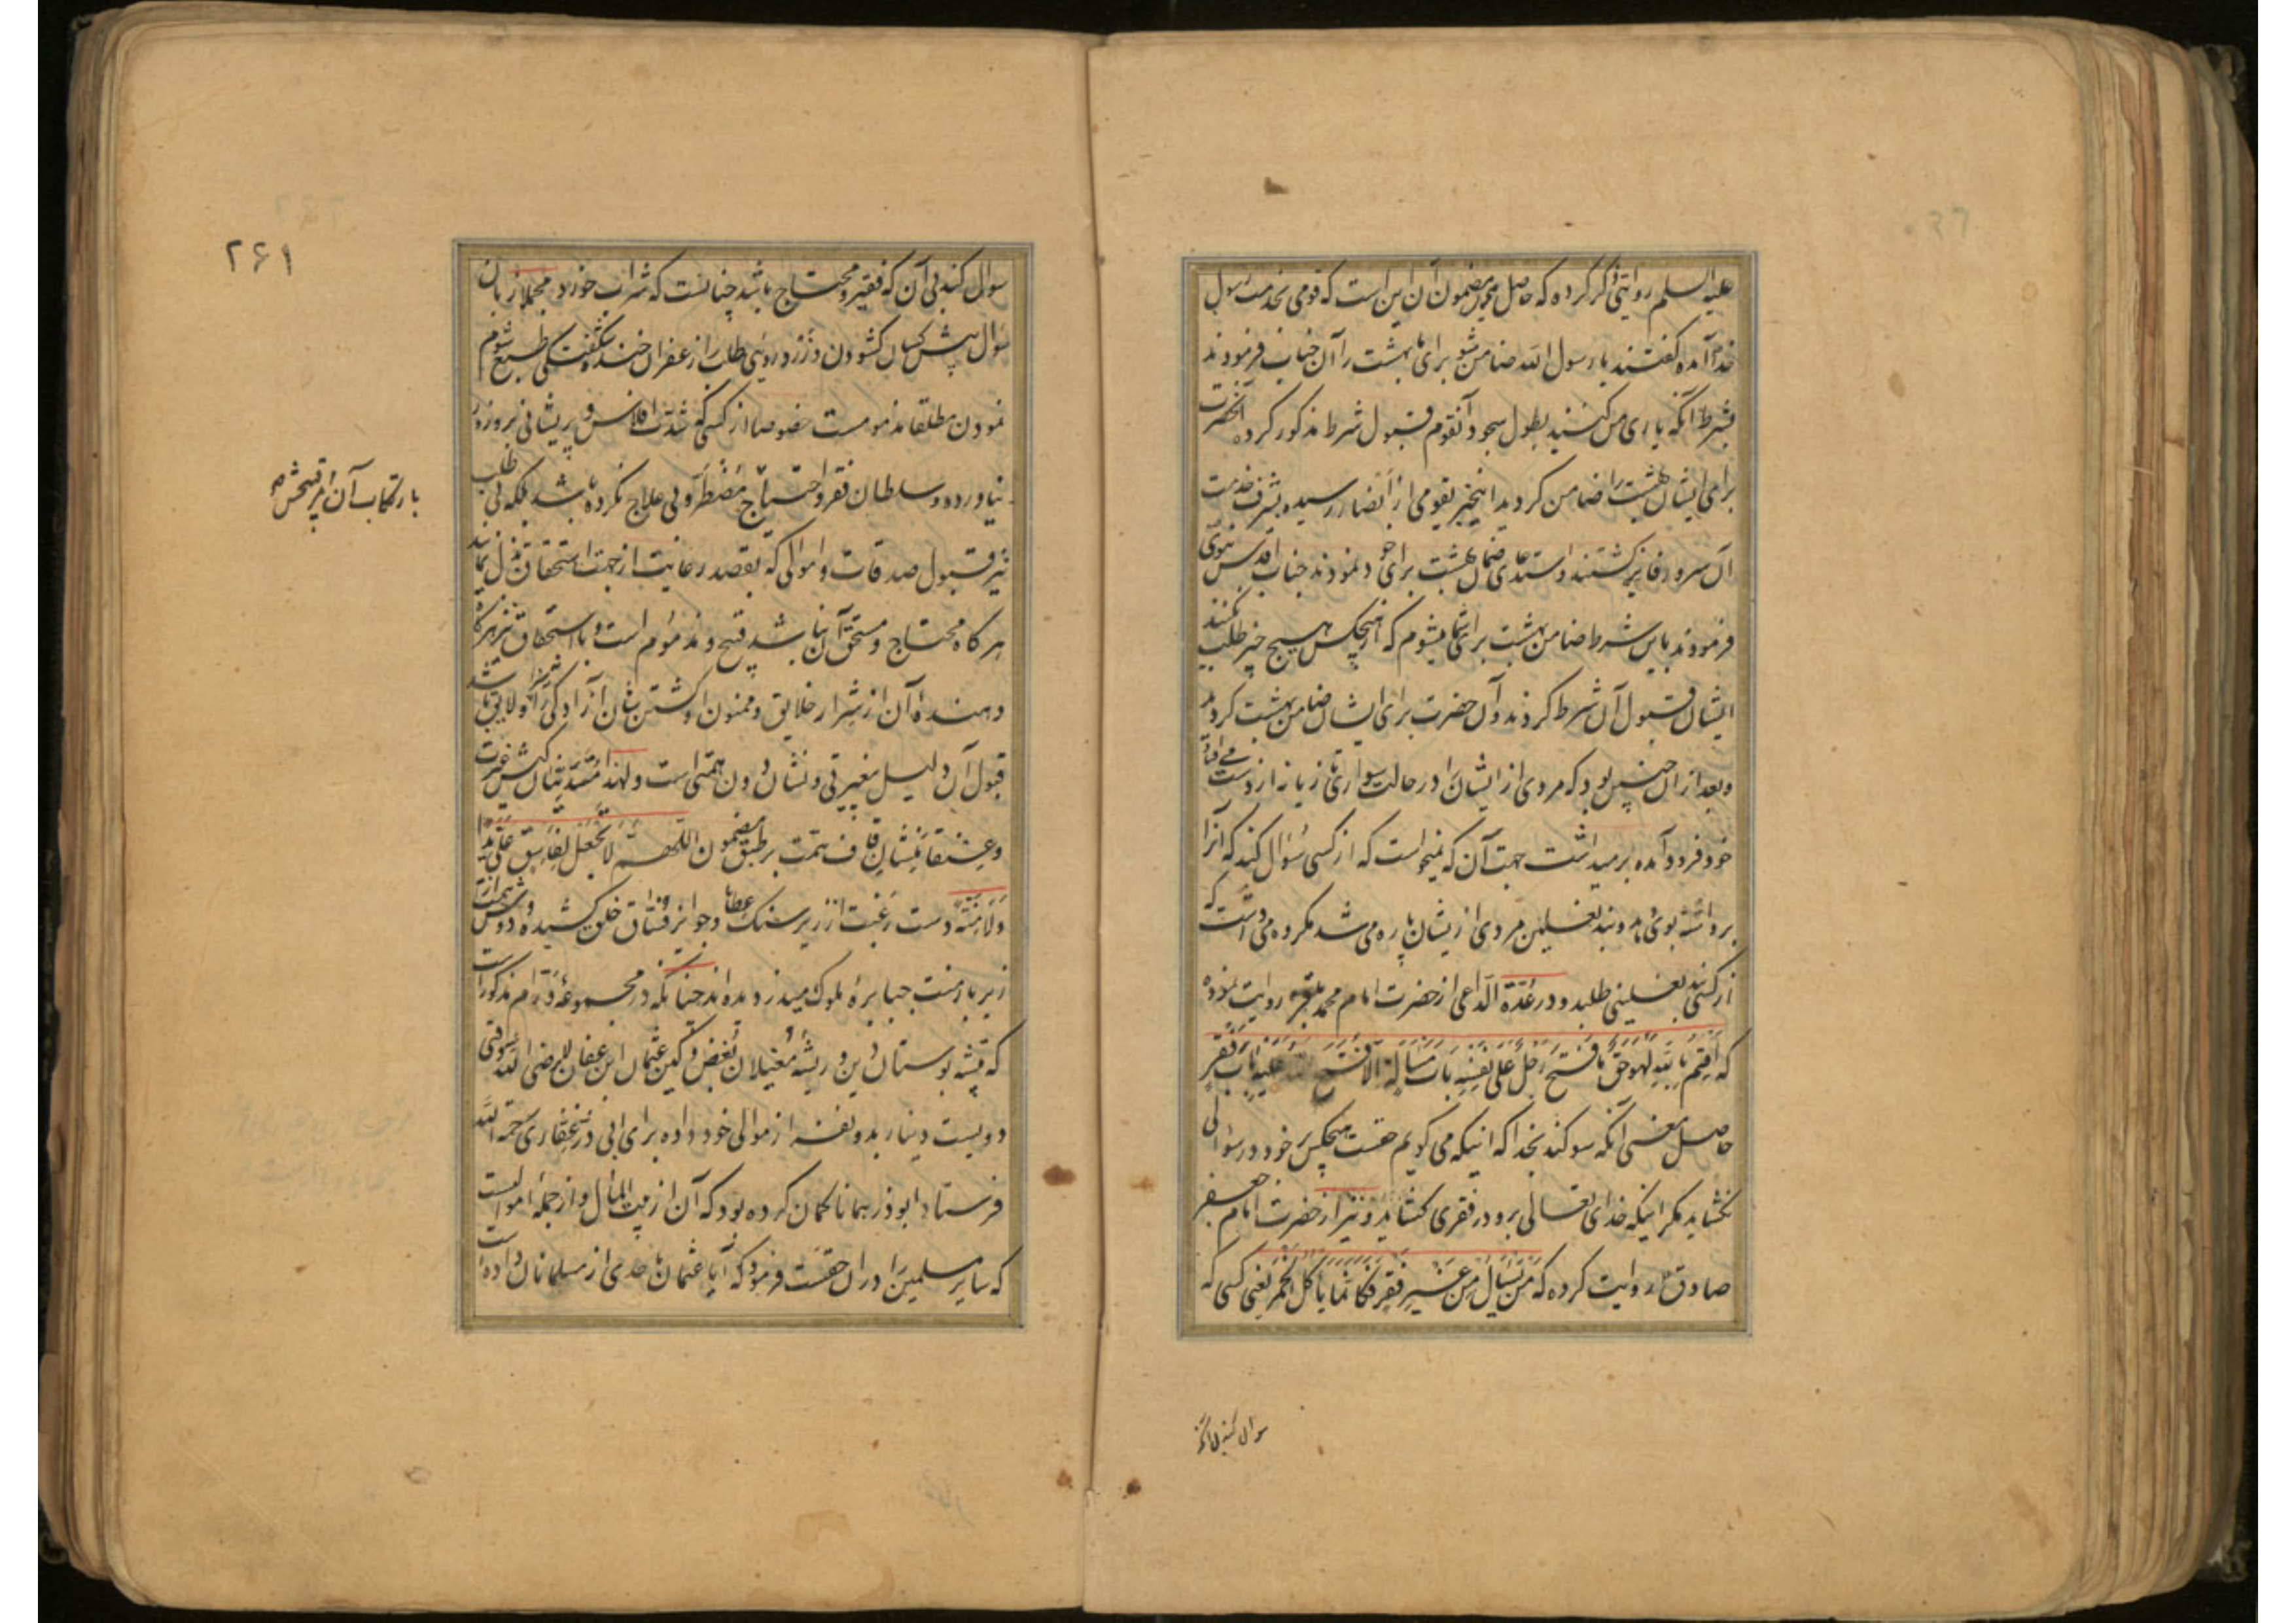 علیه السلم روایتی ذکر کرده که حاصل مضمون آن این است که قومی بخدمت رسول
خدا آمده گفتند یا رسول الله ضامن شو برای ما بهشت را آن جناب فرمودند
بشرط آنکه یاری من کنید بطول سجود آنقوم قبول شرط مذکور کرده آنحضرت
برای ایشان بهشت را ضامن گردید اینخبر بقومی از انصار رسیده بشرف خدمت
آن سرور فایز گشتند و استدعای ضمان بهشت برای خود نمودند جناب اقدس نبوی
فرمودند باین شرط ضامن بهشت برای شما میشوم که از هیچکس هیچ چیز طلب نکنید
ایشان قبول آن شرط کردند و آن حضرت برای ایشان ضامن بهشت گردید
و بعد از آن چنین بود که مردی از ایشان را در حالت سواری تازیانه از دست می افتاد
خود فرود آمده بر میداشت جهت آن که نمیخواست که از کسی سؤال کند که آنرا
برداشته بوی دهد و بند نعلین مردی از ایشان پاره می شد مکروه می داشت که
از کسی بند نعلینی طلبد و در عدّة الدّاعی از حضرت امام محمد باقر روایت نموده
که اقسم بالله لهو حقّ ما فتح رجل علی نفسه باب مسألة الا فتح الله علیه باب فقر
حاصل معنی آنکه سوکند بخدا که اینکه می کویم حقست هیچکس بر خود در سؤالی
نکشاید مکر اینکه خدای تعالی برو در فقری کشاید و نیز از حضرت امام جعفر
صادق روایت کرده که من یسأل من غیر فقر فکأنما یأکل الخمر یعنی کسی که
سوال کند بی آن که
سوال کند بی آن که فقیر و محتاج باشد چنانست که شراب خورد مجملا زبان
سؤال پیش کسان کشودن و از زردروئی طلب زعفران خنده و شگفتکی طمع شوم
نمودن مطلقا مذمومست خصوصا از کسی که شدّت افلاس و پریشانی بروزور
نیاورده و سلطان فقر و احتیاج مضطرّ و بی علاج نکرده باشد بلکه بی طلب
نیز قبول صدقات و اموالی که بقصد رعایت از جهت استحقاق بذل نمایند
هر کاه محتاج و مستحق آن نباشد قبیح و مذموم است و با استحقاق نیز هرکاه
دهنده آن از شرار خلایق و ممنون او کشتن بشان آزادگی نالایق باشد
قبول آن دلیل بیغیرتی و نشان دون همتی است و لهذا مسندنشینان کیش غیرت
و عنقا نشینان قاف همّت بر طبق مضمون اللهمّ لا تجعل لفاسق علیّ یدا
و لا منّة دست رغبت از زیر سنک عطا و جوایز فسّاق خلق کشیده و دوش همت از
زیر بار منت جبابره ملوک میدزدیده اند چنانکه در مجموعه ورّام مذکور است
که تیشه بوستان دین و ریشه مغیلان بغض و کین عثمان ابن عفان وقتی
دویست دینار بدو نفر از موالی خود داده برای ابی ذر غفاری رحمه الله
فرستاد ابوذر همانا گمان کرده بود که آن از بیت المال و از جمله اموالیست
که سایر مسلمین را در آن حقّست فرمود که آیا عثمان باحدی از مسلمانان داده است
۲۶۱
بارتکاب آن امر قبیح ش